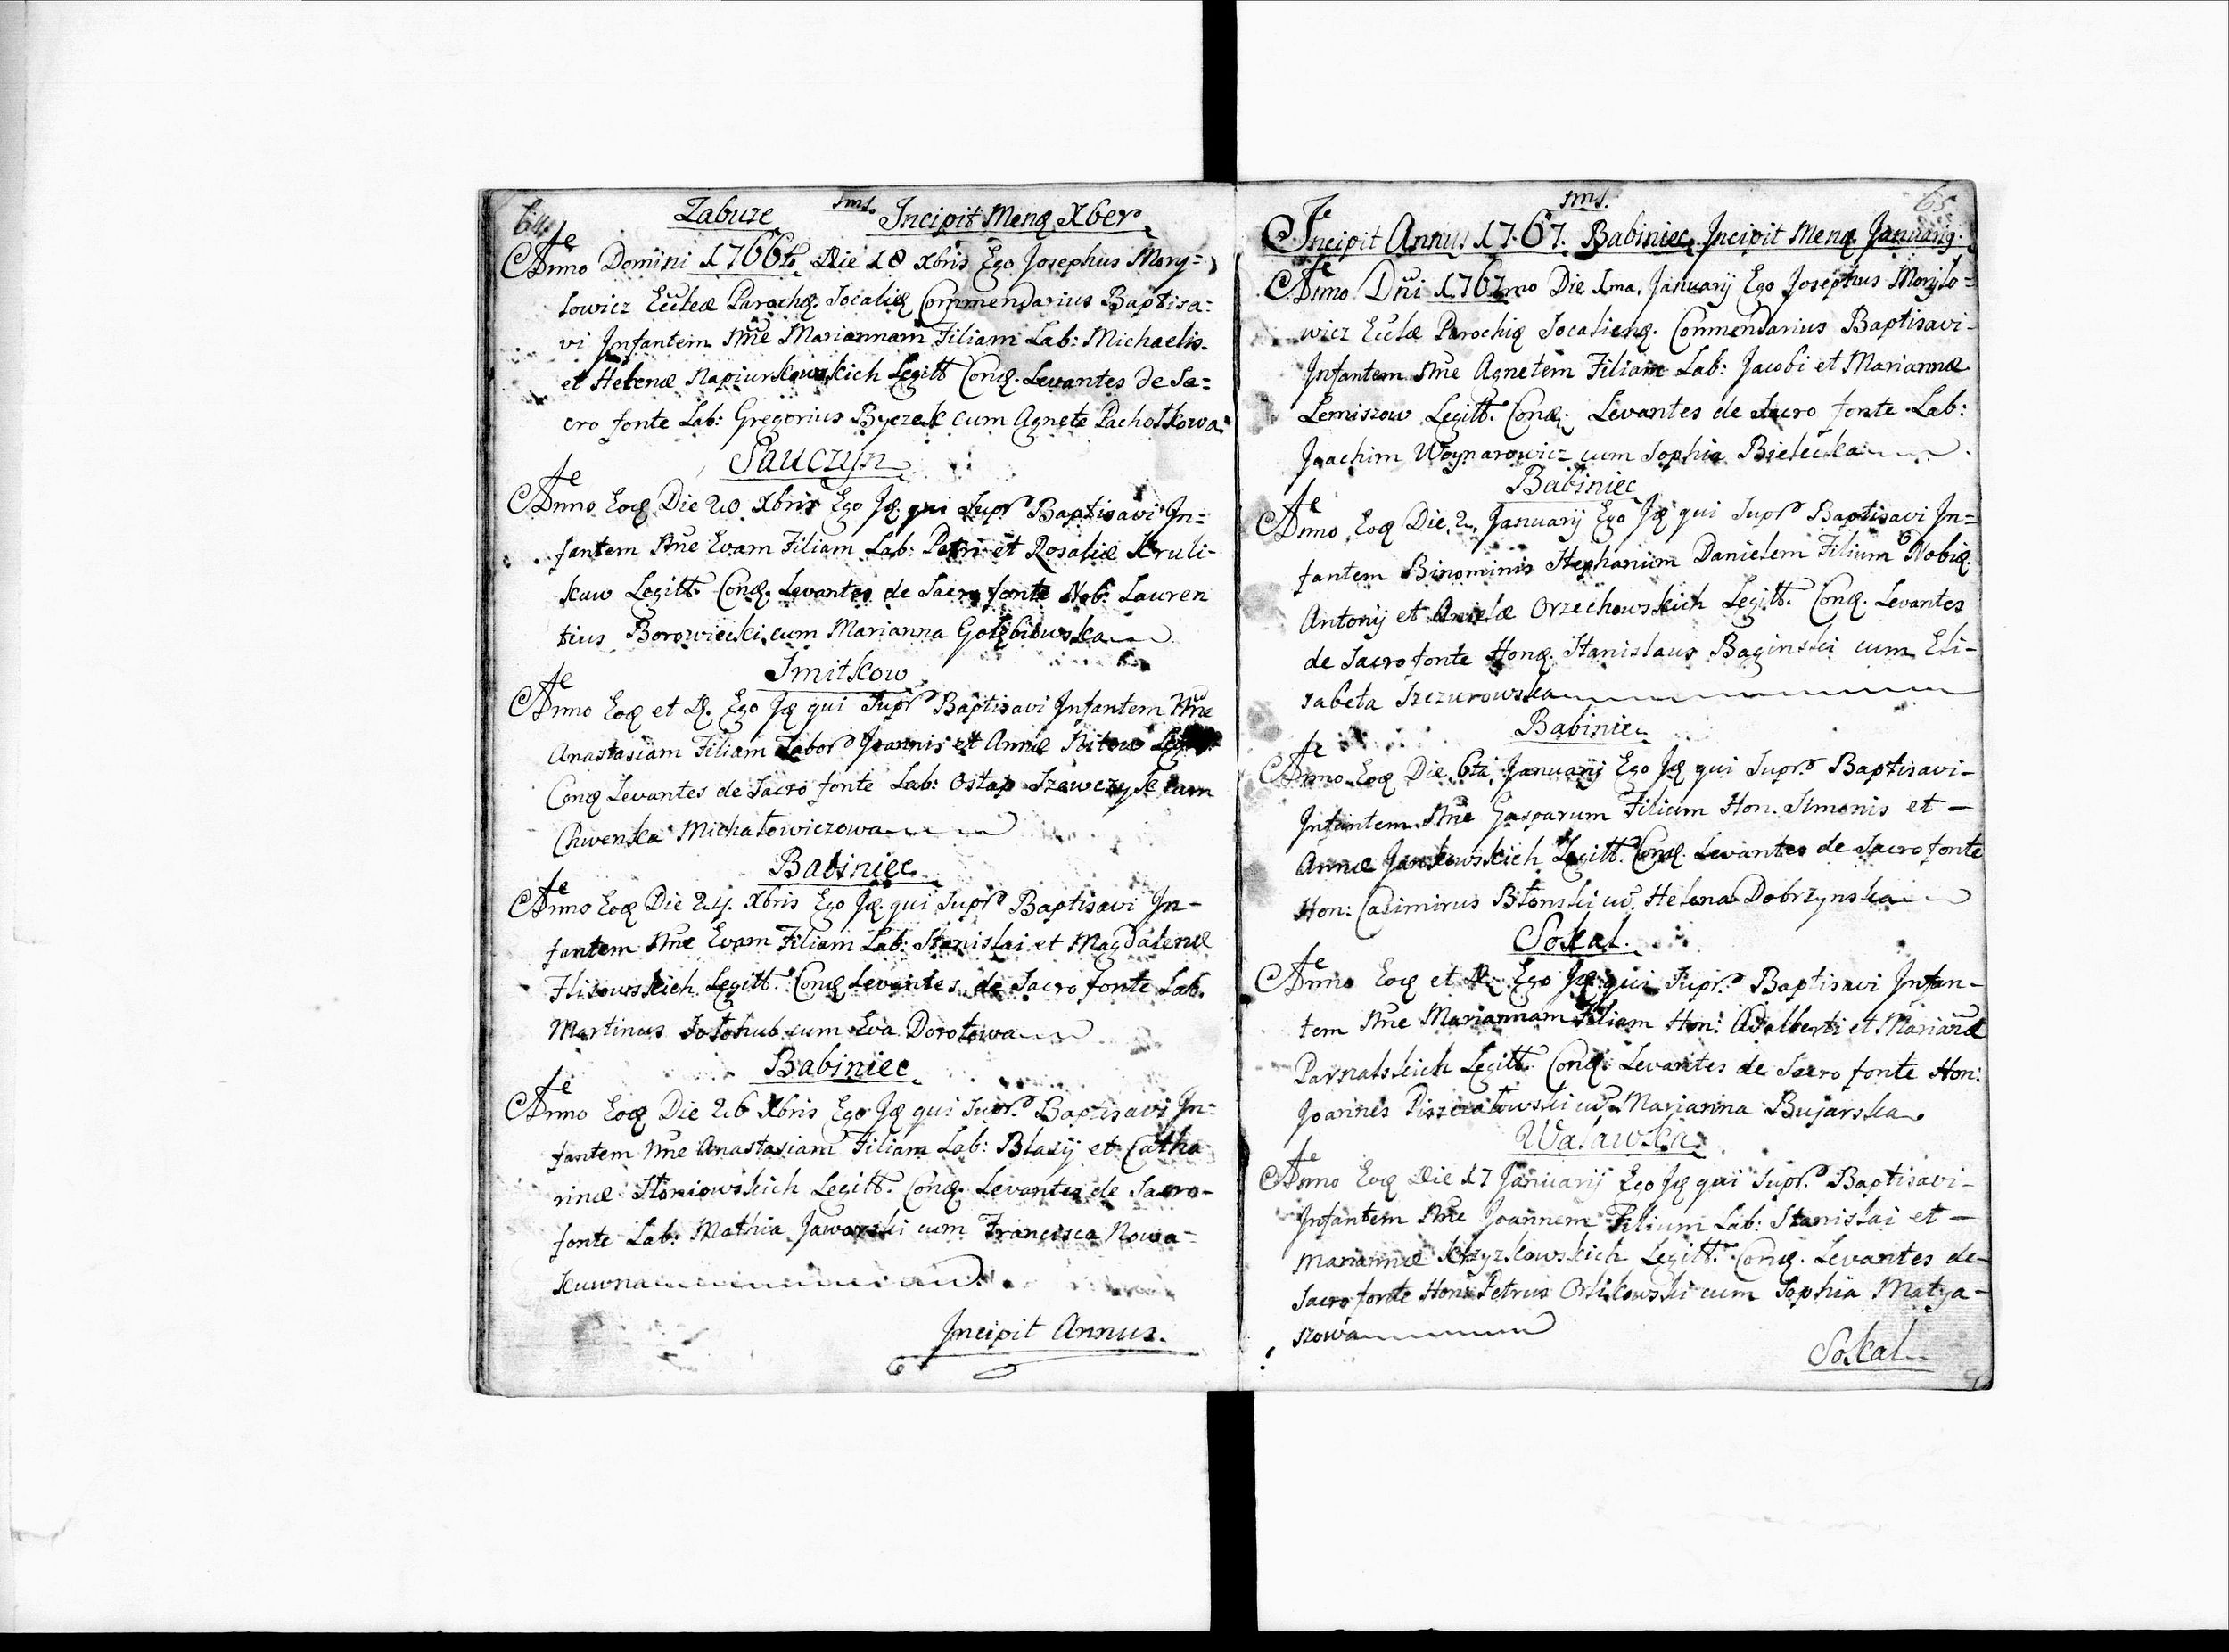 64
Zabuze Jms. Incipit Menq Xber
Anno Domini 1766to Die 18 Xbris Ego Josephus Mory=
lowicz Eccleæ Parochq. Socaliq Commendarius Baptisa=
vi Infantem Nne Mariannam Filiam Lab: Michaelis
et Helenæ Napiurkowskich Legitt Conq. Levantes de Sa=
cro fonte Lab: Gregorius Byczek cum Agnete Pachotkowa
Sauczyn
Anno Eoq Die 20 Xbris Ego Jq. qui Supr Baptisavi In=
fantem Nne Evam Filiam Lab: Petri et Rosaliæ Kruli-
kuw Legitt. Conq. Levantes de Sacro fonte Nob: Lauren
tius Borowiecki cum Marianna Gołębiowska
Smitkow
Anno Eoq et D. Ego Jq qui Supr Baptisavi Infantem Nne
Anastasiam Filiam Labor Joannis et Annæ
Conq Levantes de Sacro fonte Lab: Ostap Szewczyk cum
Chwenka Michałowiczowa
Babiniec
Anno Eoq Die 24. Xbris Ego Jq. qui Supr Baptisavi In-
fantem Nne Evam Filiam Lab: Stanislai et Magdalenæ
Legitt. Conq Levantes de Sacro fonte Lab.
Martinus Sołohub cum Eva Dorotowa
Babiniec
Anno Eoq Die 26 Xbris Ego Jq qui Supr. Baptisavi In=
fantem Nne Anastasiam Filiam Lab: Blasij et Catha
rinæ Słoniowskich Legitt. Conq. Levantes de Sacro-
fonte Lab: Mathia Jaworski cum Francisca Nowa=
kuwna
Incipit Annus.
Jms. 65
Incipit Annus 1767. Babiniec Incipit Menq. Januarij.
Anno Dni 1767mo Die 1ma, Januarij Ego Josephus Moryło=
wicz Eccłæ Parochiq Socalienq. Commendarius Baptisavi-
Infantem Nne Agnetem Filiam Lab: Jacobi et Mariannæ
Lemiszow Legitt. Conq. Levantes de Sacro fonte Lab:
Joachim Woynarowicz cum Sophia Bielecka
Babiniec
Anno Eoq Die 2. Januarij Ego Jq qui Supr Baptisavi In=
fantem Binominis Stephanum Danielem Filium Nobiq.
Antonij et Anielæ Orzechowskich Legitt. Conq. Levantes
de Sacro fonte Honq. Stanislaus Baginski cum Eli-
sabeta Szczurowska
Babiniec
Anno Eoq Die 6ta Januarij Ego Jq qui Supr. Baptisavi-
Infantem Nne Gasparum Filium Hon. Simonis et -
Annæ Jankowskich Legitt. Conq. Levantes de Sacro fonte
Hon: Casimirus Błonski cu. Helena Dobrzynska
Sokal.
Anno Eoq et D. Ego Jq qui Supr. Baptisavi Infan-
tem Nne Mariannam Filiam Hon: Adalberti et Mariañæ
Parnalskich Legitt. Conq. Levantes de Sacro fonte Hon:
Joannes cu. Marianna Bujarska
Waławka
Anno Eoq Die 17 Januarij Ego Jq qui Supr. Baptisavi-
Infantem Nne Joannem Filium Lab: Stanislai et -
Mariannæ Krzyzkowskich Legitt. Conq. Levantes de-
Sacro fonte Hon: Petrus Orlikowski cum Sophia Matya-
szowa
Sokal